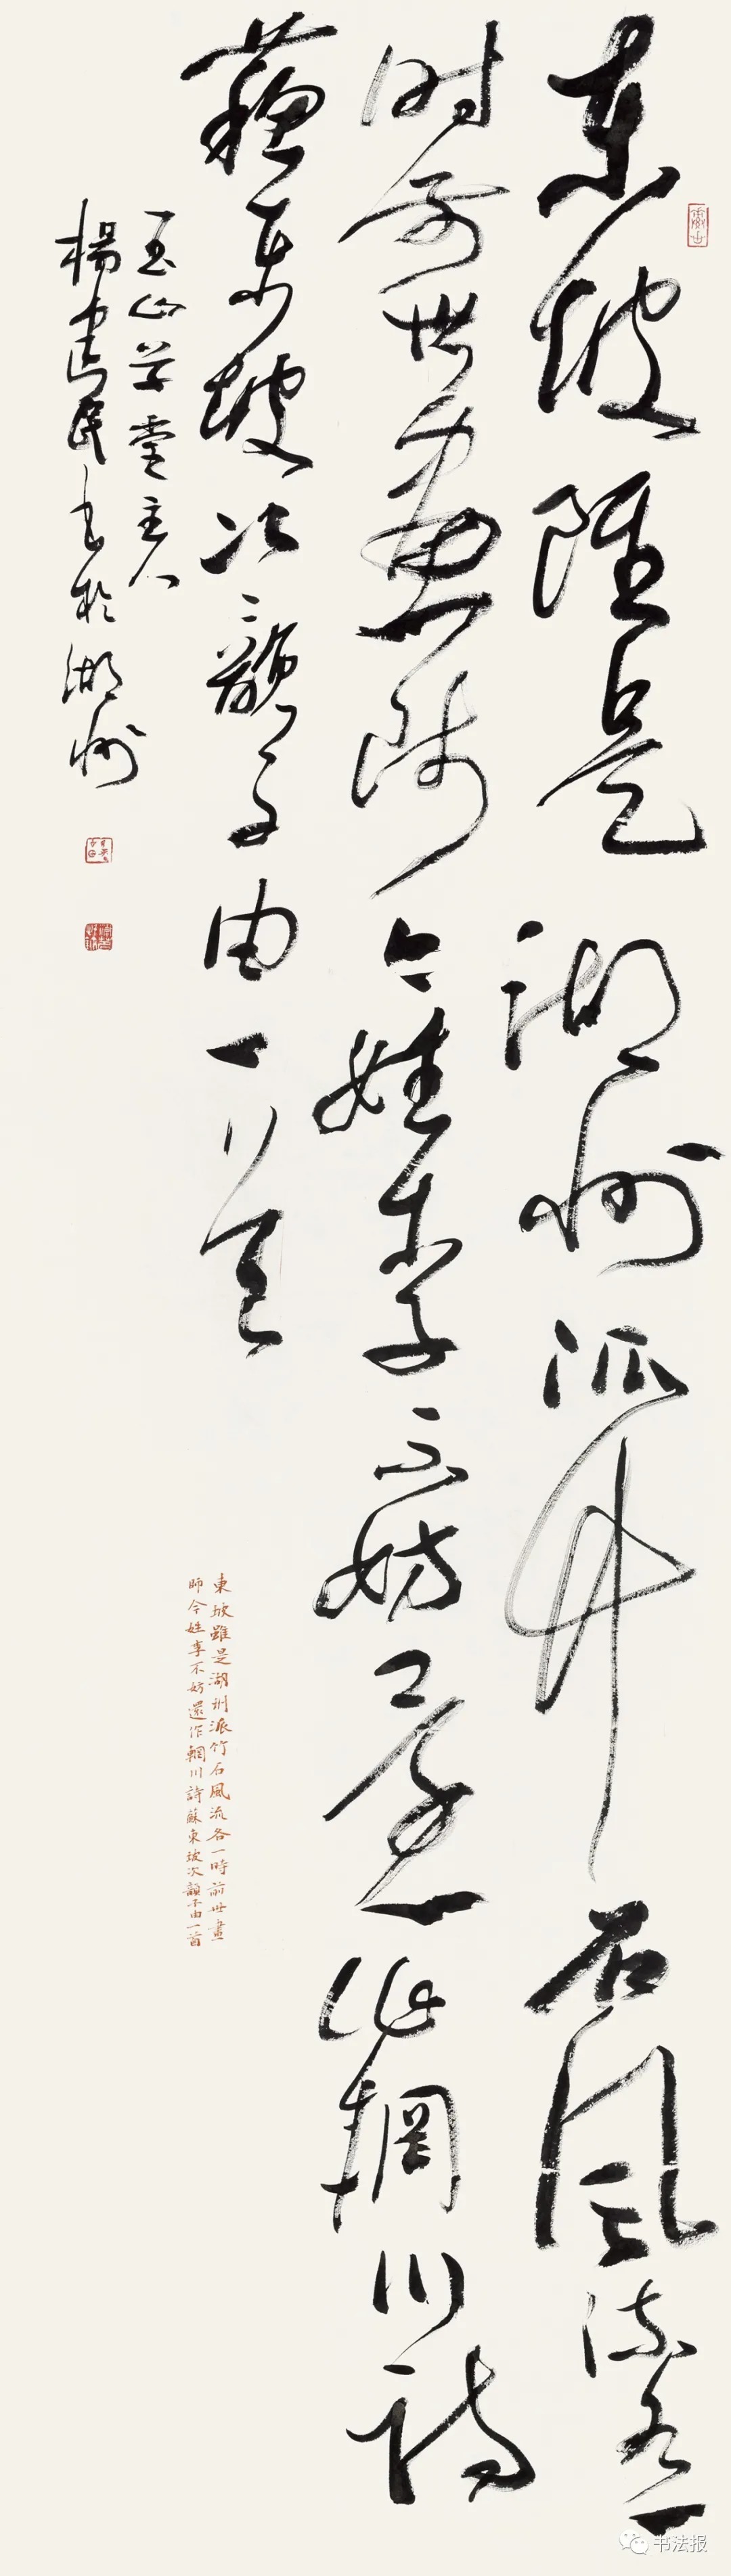 東坡雖是湖州派竹石風流各一
時前世畫師今姓李不妨還作輞川詩
蘇東坡次韻子由一首
玉山草堂主人
楊建民書於湖州
東坡雖是湖州派竹石風流各一時前世畫
師今姓李不妨還作輞川詩蘇東坡次韻子由一首
书法报